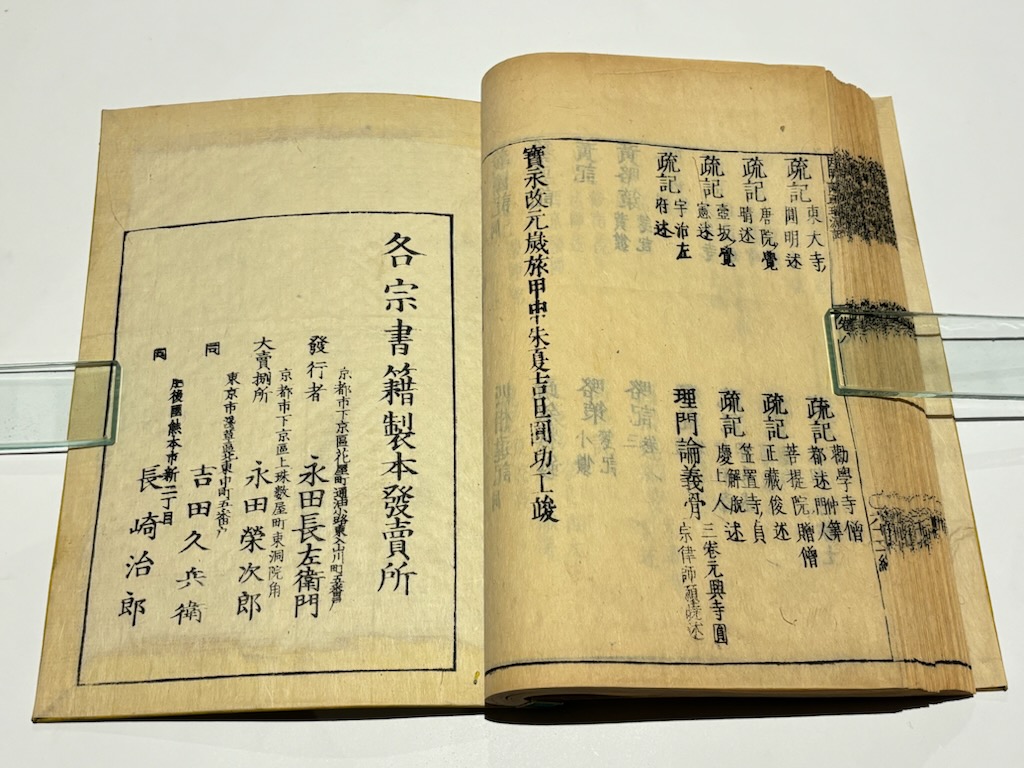 疏記 東大寺圓明述
疏記 唐院覺晴述
疏記 壺坂覺憲述
疏記 宇治左府述
疏記 勸學寺僧都述門人仲算
疏記 菩提院贈僧正藏俊述
疏記 笠置寺貞慶解脫上人述
理門論義骨 三卷元興寺圓宗律師願曉述
寶永改元歲旅甲申朱夏吉旦剞功工竣
各宗書籍製本發賣所
京都市下京區花屋町通油小路東入山川町五番戶
發行者 永田長左衛門
京都市下京區上珠數屋町東洞院角
大賣捌所 永田榮次郎
東京市淺草區北東仲町五番戶
同 吉田久兵衛
肥後國熊本市新二丁目
同 長崎治郎